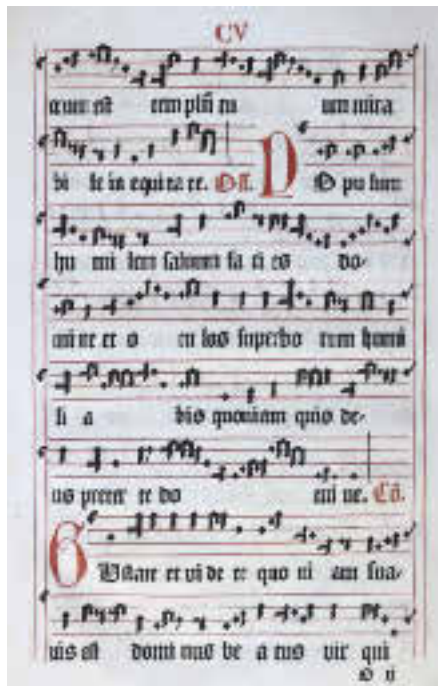 CV
a cum est tem plū tu um mira
bi le in equi ta te. Off. D O pu lum
hu mi lem saluum fa ci es do-
mi ne et o cu los superbo rum humi
li a bis quoniam quis de-
us preter te do mi ne. Cō.
G Ustate et vi de te quo ni am sua-
uis est domi nus be a tus vir qui
o ij